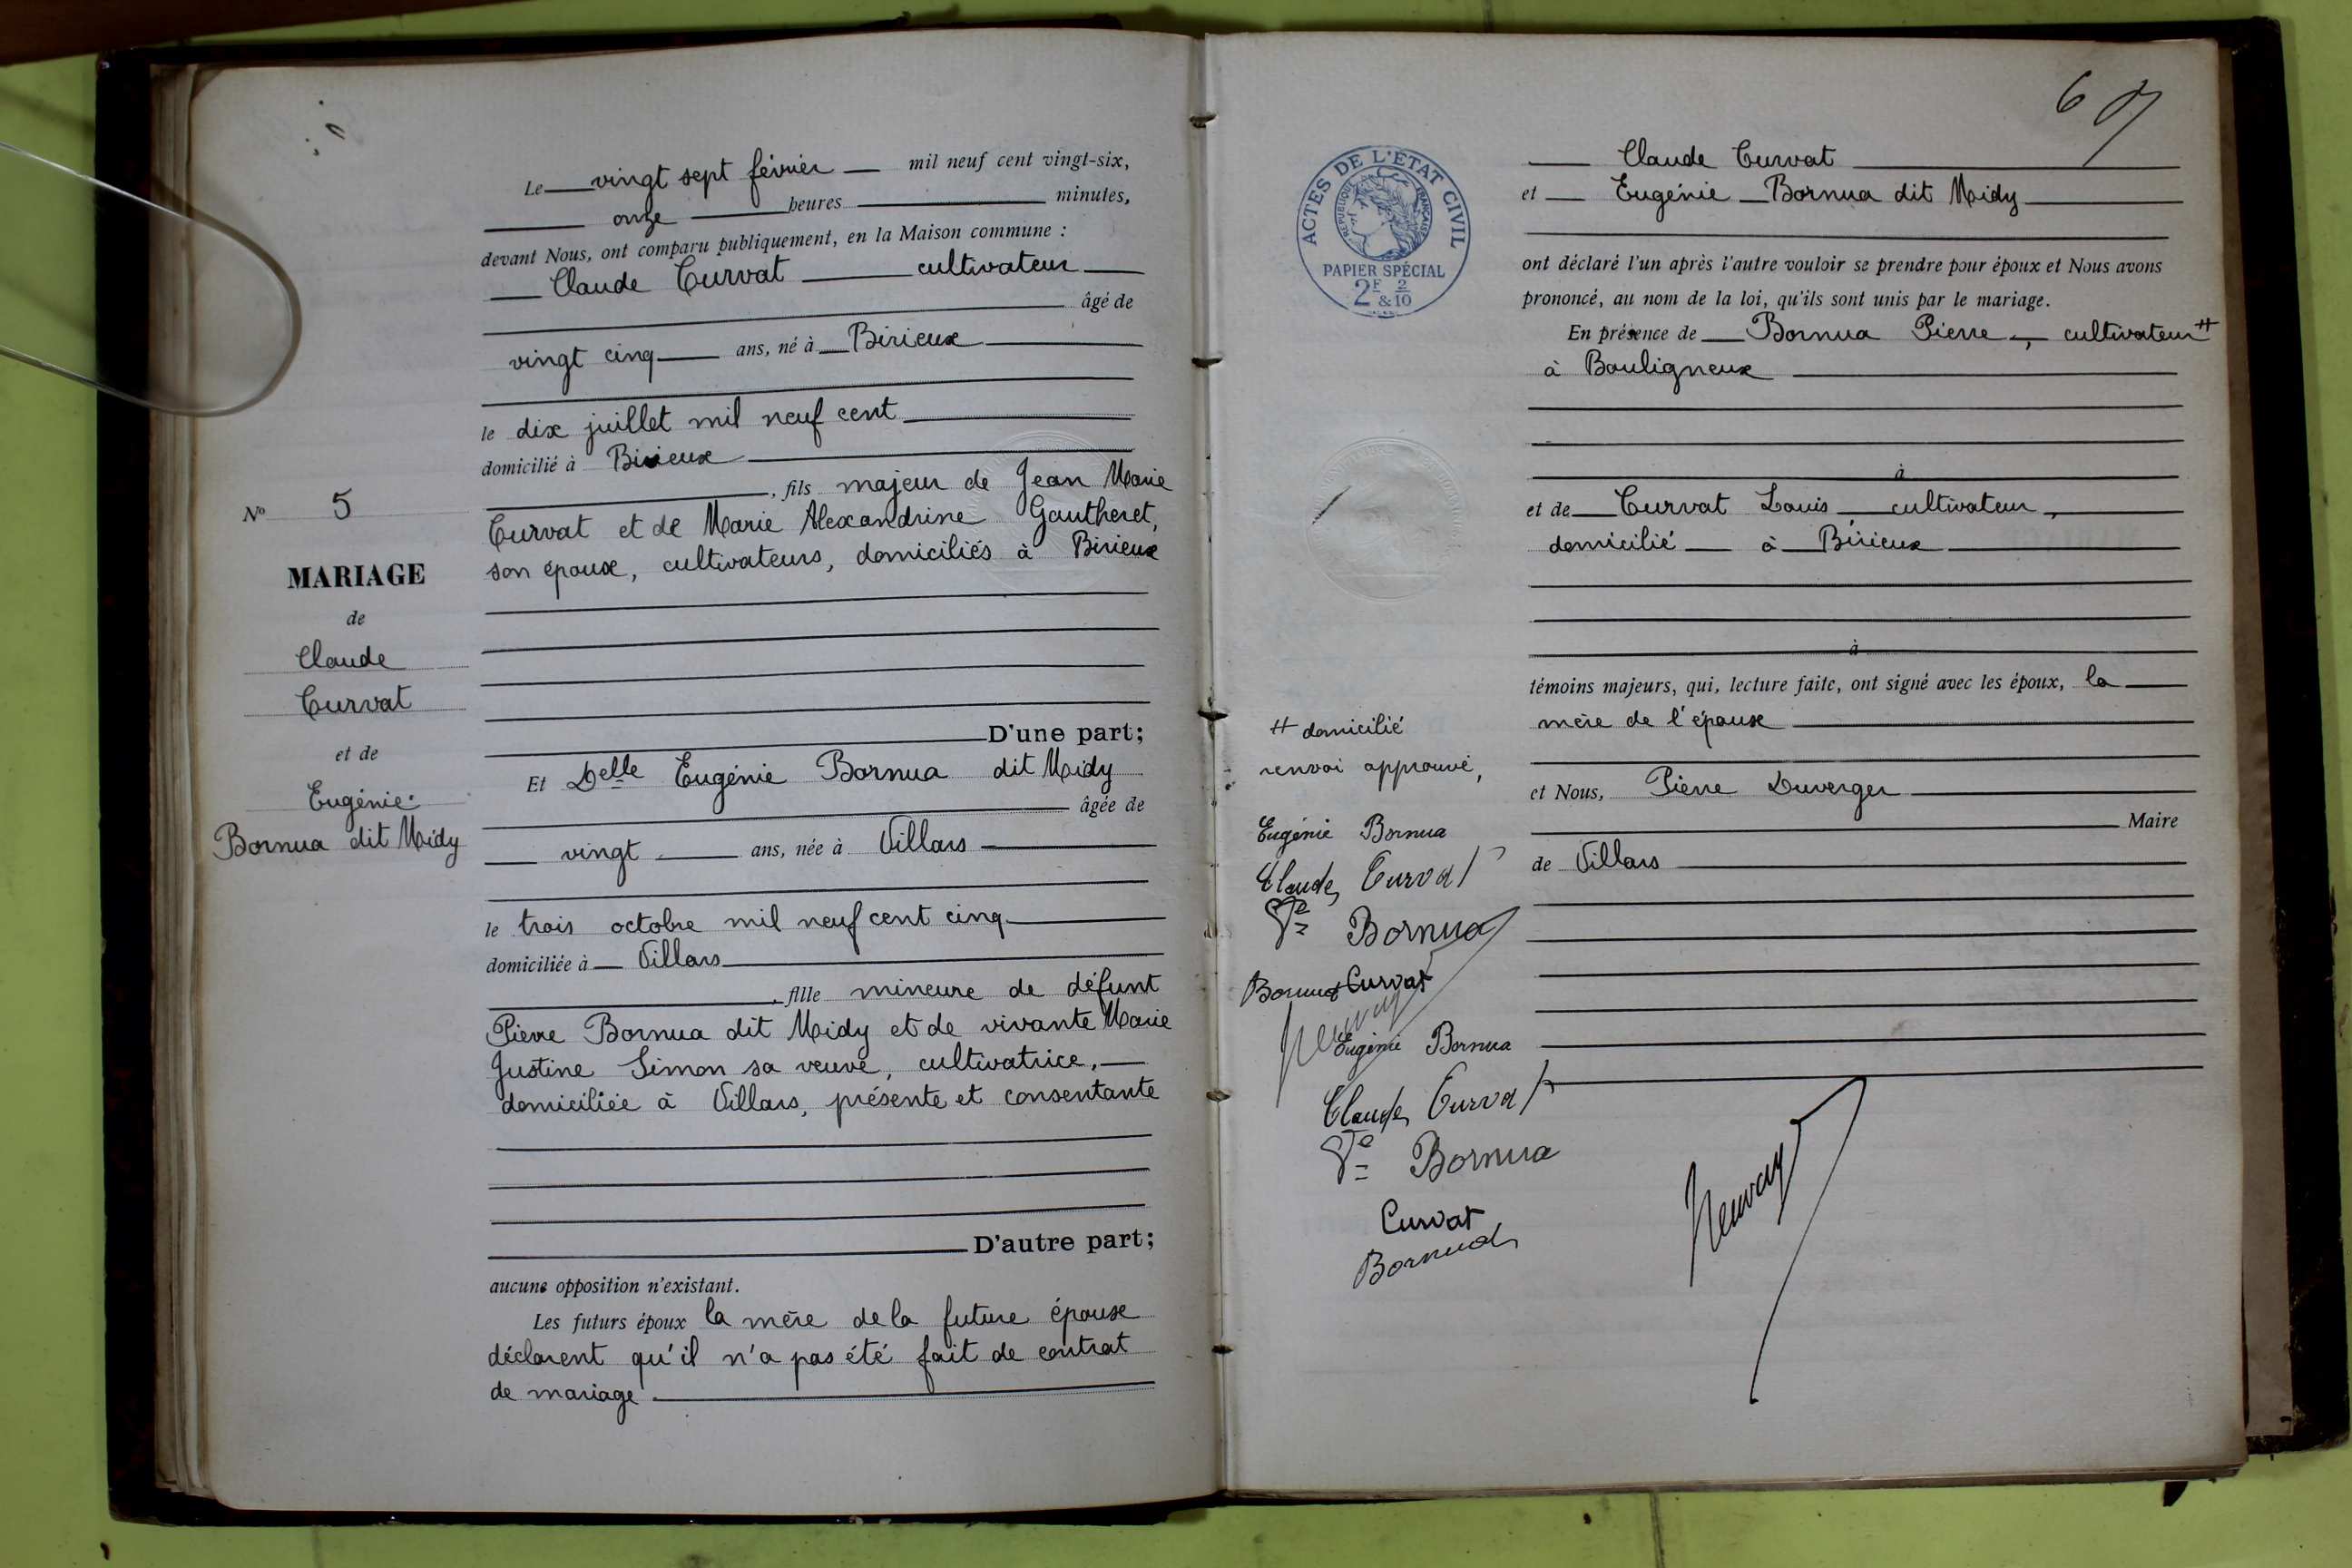 Le vingt sept février mil neuf cent vingt-six,
onze heures minutes,
devant Nous, ont comparu publiquement, en la Maison commune :
Claude Curvat cultivateur
âgé de
vingt cinq ans, né à Birieux
le dix juillet mil neuf cent
domicilié à Birieux
, fils majeur de Jean Marie
Curvat et de Marie Alexandrine Gautheret,
son épouse, cultivateurs, domiciliés à Birieux
D'une part;
Et Delle Eugénie Bornua dit Midy
âgée de
vingt ans, née à Villars
le trois octobre mil neuf cent cinq
domiciliée à Villars
, fille mineure de défunt
Pierre Bornua dit Midy et de vivante Marie
Justine Simon sa veuve, cultivatrice,
domiciliée à Villars, présente et consentante
D'autre part;
aucune opposition n'existant.
Les futurs époux la mère de la future épouse
déclarent qu'il n'a pas été fait de contrat
de mariage
No 5
MARIAGE
de
Claude
Curvat
et de
Eugénie
Bornua dit Midy
6
ACTES DE L'ÉTAT CIVIL
RÉPUBLIQUE FRANÇAISE
PAPIER SPÉCIAL
2F & 2/10
Claude Curvat
et Eugénie Bornua dit Midy
ont déclaré l'un après l'autre vouloir se prendre pour époux et Nous avons
prononcé, au nom de la loi, qu'ils sont unis par le mariage.
En présence de Bornua Pierre, cultivateur #
à Bouligneux
à
et de Curvat Louis cultivateur,
domicilié à Birieux
à
témoins majeurs, qui, lecture faite, ont signé avec les époux, la
mère de l'épouse
et Nous, Pierre Duverger
Maire
de Villars
# domicilié
renvoi approuvé,
Eugénie Bornua
Claude Curvat
Ve Bornua
Bornua Curvat
Eugénie Bornua
Claude Curvat
Ve Bornua
Curvat
Bornua